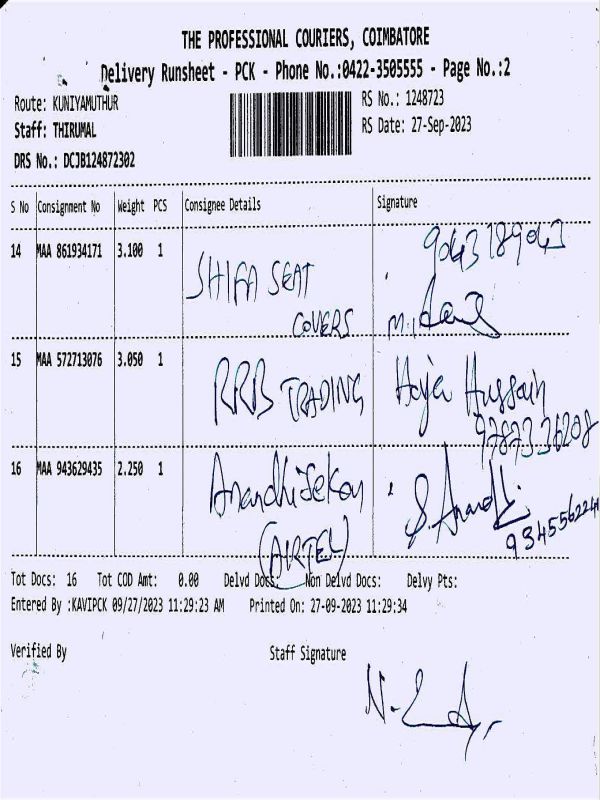 THE PROFESSIONAL COURIERS, COIMBATORE
Delivery Runsheet - PCK - Phone No.:0422-3505555 - Page No.:2
Route: KUNIYAMUTHUR
RS No.: 1248723
Staff: THIRUMAL
RS Date: 27-Sep-2023
DRS No.: DCJB124872302
S No Consignment No Weight PCS Consignee Details Signature
14 MAA 861934171 3.100 1 SHIFA SEAT 9043189043
COVERS
15 MAA 572713076 3.050 1 RRB TRADING Haja Hussain
9787336208
16 MAA 943629435 2.250 1 Anandhisekar S. Anandhi
(AIRTEL)
Tot Docs: 16 Tot COD Amt: 0.00 Delvd Docs: Non Delvd Docs: Delvy Pts:
Entered By :KAVIPCK 09/27/2023 11:29:23 AM Printed On: 27-09-2023 11:29:34
Verified By Staff Signature